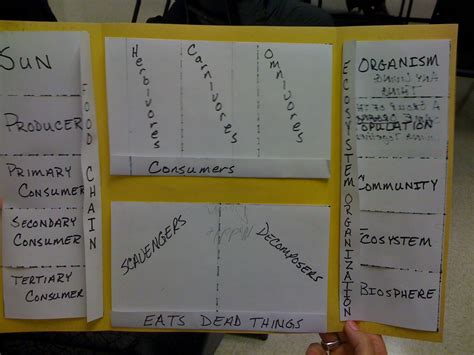 SUN
PRODUCER
PRIMARY
CONSUMER
SECONDARY
CONSUMER
TERTIARY
CONSUMER
FOOD CHAIN
Herbivores
Carnivores
Omnivores
Consumers
SCAVENGERS
DECOMPOSERS
EATS DEAD THINGS
ECOSYSTEM ORGANIZATION
ORGANISM
POPULATION
COMMUNITY
ECOSYSTEM
BIOSPHERE